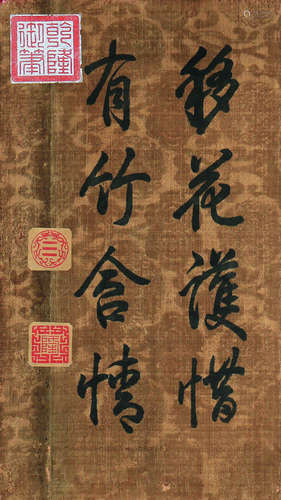 移花護惜
有竹含情
乾隆御筆